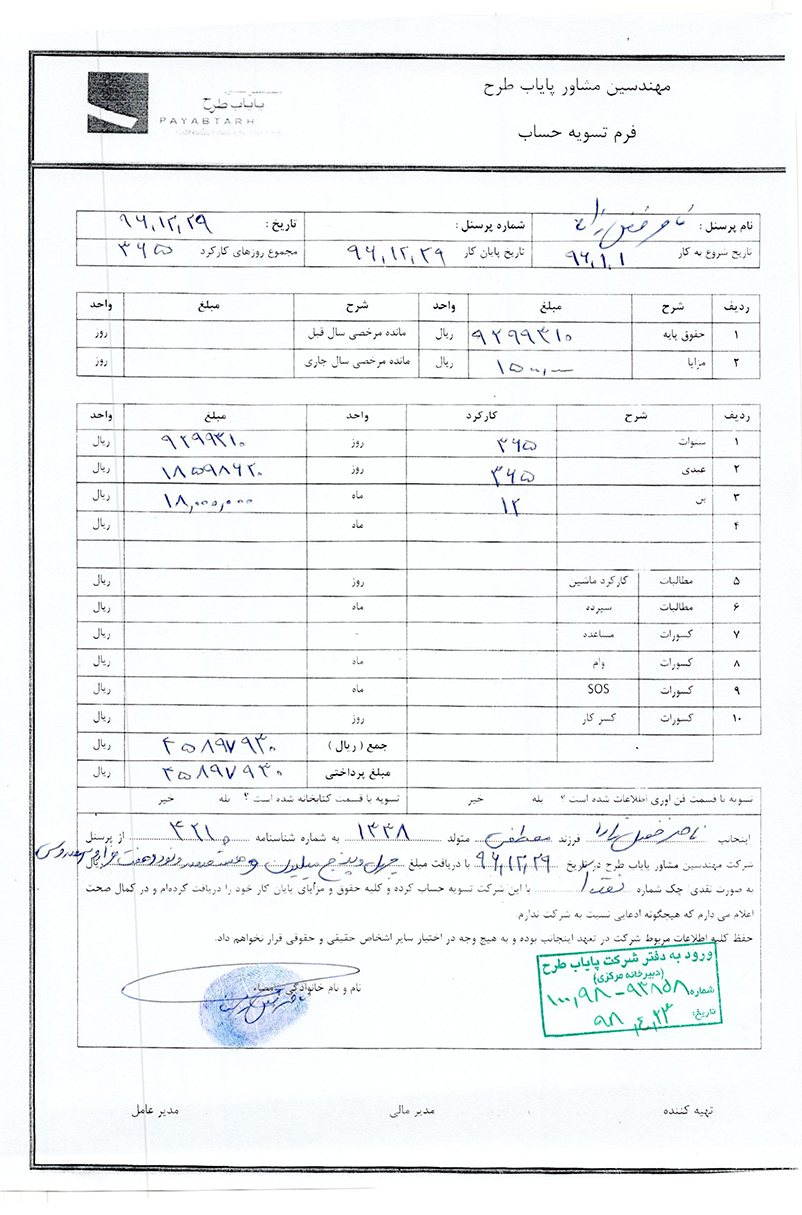 مهندسین مشاور پایاب طرح
پایاب طرح
PAYABTARH
فرم تسویه حساب
نام پرسنل : ناصر شماره پرسنل : تاریخ : ۹۶,۱۲,۲۹
تاریخ شروع به کار ۹۶,۱,۱ تاریخ پایان کار ۹۶,۱۲,۲۹ مجموع روزهای کارکرد ۳۶۵
ردیف شرح مبلغ واحد شرح مبلغ واحد
۱ حقوق پایه ۹۲۹۹۳۱۰ ریال مانده مرخصی سال قبل روز
۲ مزایا ریال مانده مرخصی سال جاری روز
ردیف شرح کارکرد واحد مبلغ واحد
۱ سنوات ۳۶۵ روز ۹۲۹۹۳۱۰ ریال
۲ عیدی ۳۶۵ روز ۱۸۵۹۸۶۲۰ ریال
۳ بن ۱۲ ماه ۱۸,۰۰۰,۰۰۰ ریال
۴ ماه ریال
۵ مطالبات کارکرد ماشین روز ریال
۶ مطالبات سپرده ماه ریال
۷ کسورات مساعده - ریال
۸ کسورات وام ماه ریال
۹ کسورات SOS ماه ریال
۱۰ کسورات کسر کار روز ریال
جمع ( ریال ) ۴۵۸۹۷۹۳۰ ریال
مبلغ پرداختی ۴۵۸۹۷۹۳۰ ریال
تسویه با قسمت فن اوری اطلاعات شده است ؟ بله خیر تسویه با قسمت کتابخانه شده است ؟ بله خیر
اینجانب ناصر فرزند مصطفی متولد ۱۳۳۸ به شماره شناسنامه از پرسنل
شرکت مهندسین مشاور پایاب طرح در تاریخ ۹۶,۱۲,۲۹ با دریافت مبلغ چهل و پنج میلیون و هشتصد و نود و هفت هزار و ریال
به صورت نقدی/ چک شماره نقدا با این شرکت تسویه حساب کرده و کلیه حقوق و مزایای پایان کار خود را دریافت کرده‌ام و در کمال صحت
اعلام می دارم که هیچگونه ادعایی نسبت به شرکت ندارم.
حفظ کلیه اطلاعات مربوط شرکت در تعهد اینجانب بوده و به هیچ وجه در اختیار سایر اشخاص حقیقی و حقوقی قرار نخواهم داد.
نام و نام خانوادگی و امضاء
ورود به دفتر شرکت پایاب طرح
(دبیرخانه مرکزی)
شماره: ۱۰۰,۹۸-۹۳۸۵۸
تاریخ: ۹۸,۴,۲۳
تهیه کننده مدیر مالی مدیر عامل